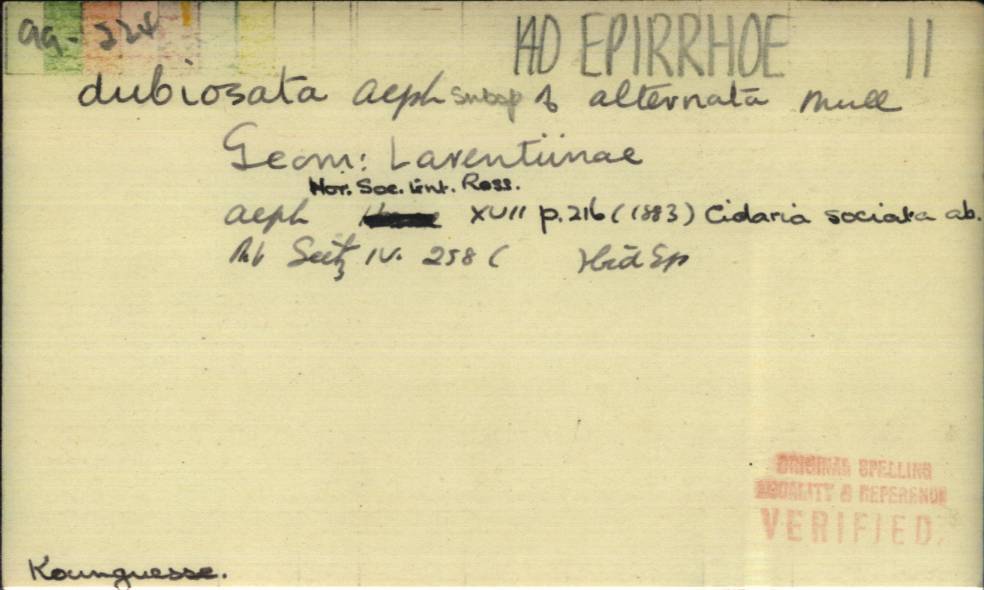 99-224 AD EPIRRHOE 11
dubiosata Alph subsp of alternata Mull
Geom: Larentiinae
Hor. Soc. Ent. Ross.
Alph XVII p.216 (1883) Cidaria sociata ab.
Seitz IV. 258 (
ORIGINAL SPELLING
LOCALITY & REFERENCE
VERIFIED.
Kounguesse.